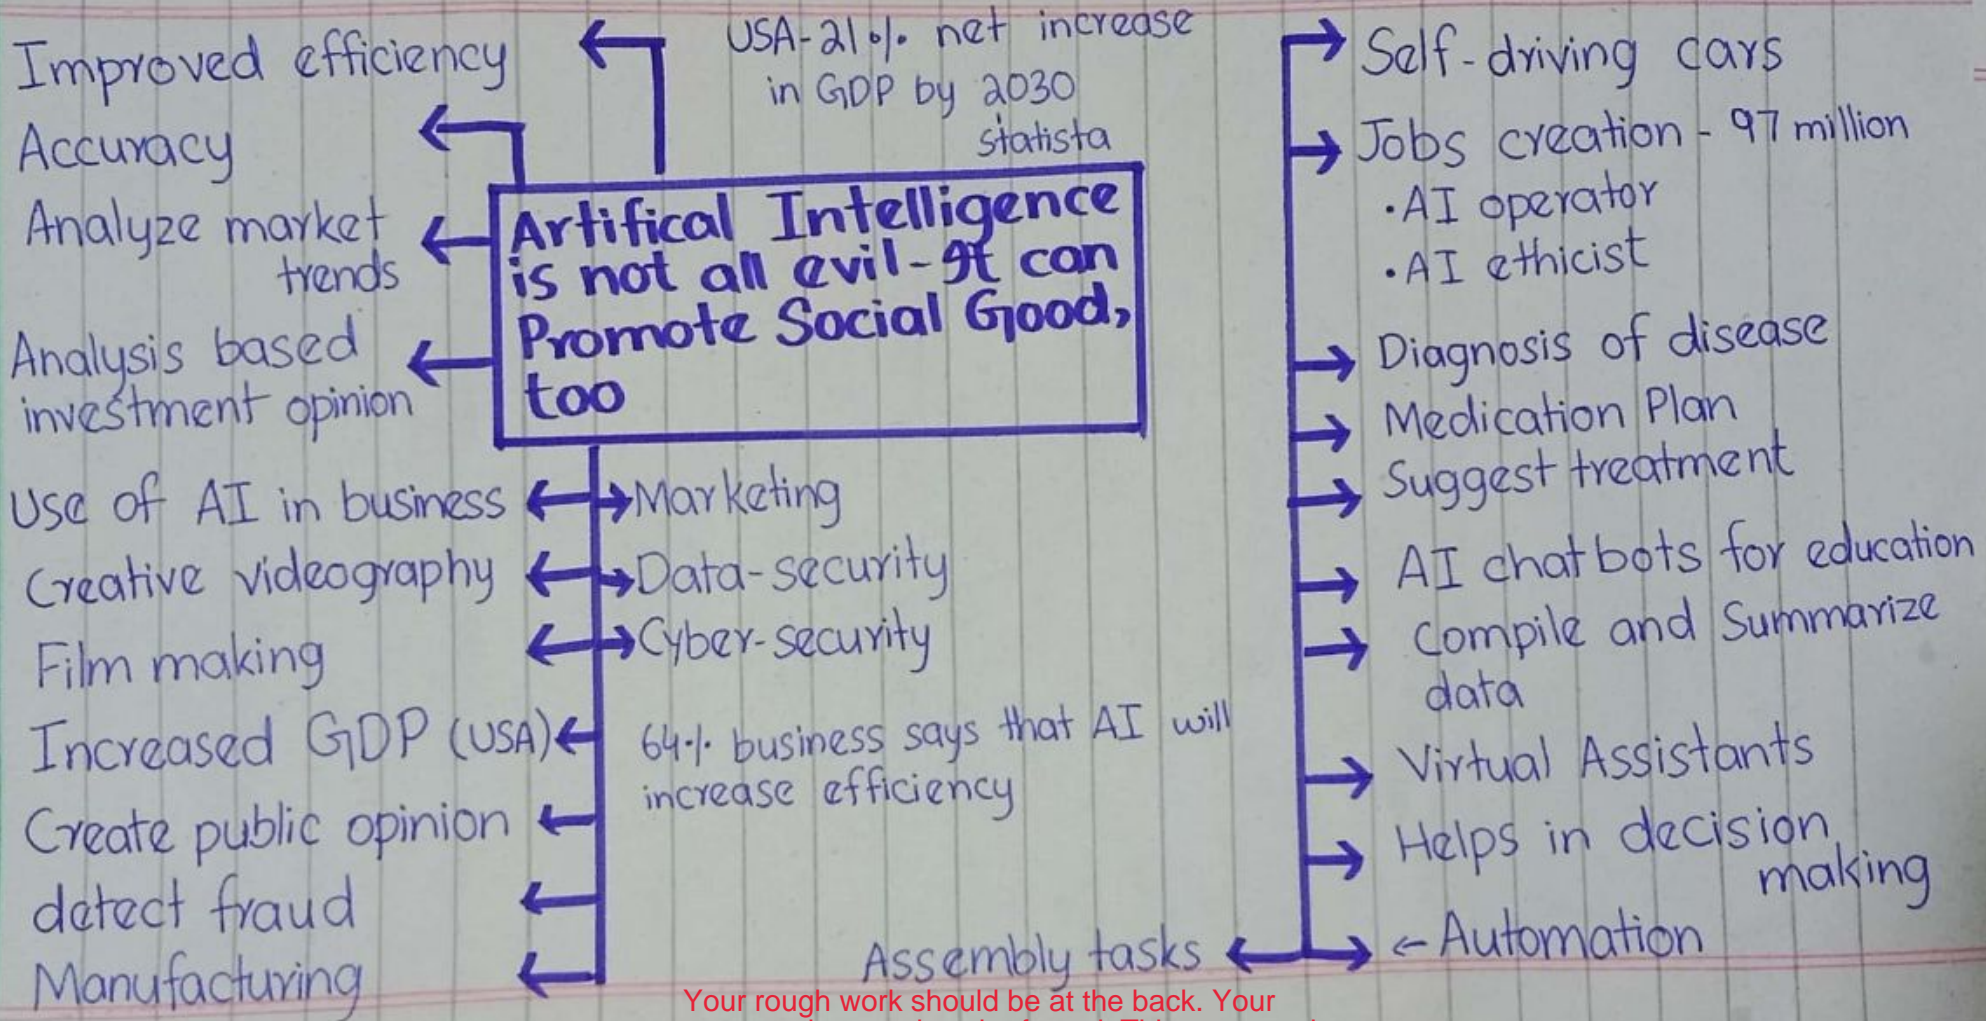 Improved efficiency
Accuracy
Analyze market
trends
Analysis based
investment opinion
Use of AI in business
Creative videography
Film making
Increased GDP (USA)
Create public opinion
detect fraud
Manufacturing
USA-21% net increase
in GDP by 2030
statista
Artifical Intelligence
is not all evil-It can
Promote Social Good,
too
Marketing
Data-security
Cyber-security
64% business says that AI will
increase efficiency
Assembly tasks
Self-driving cars
Jobs creation - 97 million
·AI operator
·AI ethicist
Diagnosis of disease
Medication Plan
Suggest treatment
AI chatbots for education
Compile and Summarize
data
Virtual Assistants
Helps in decision
making
←Automation
Your rough work should be at the back. Your